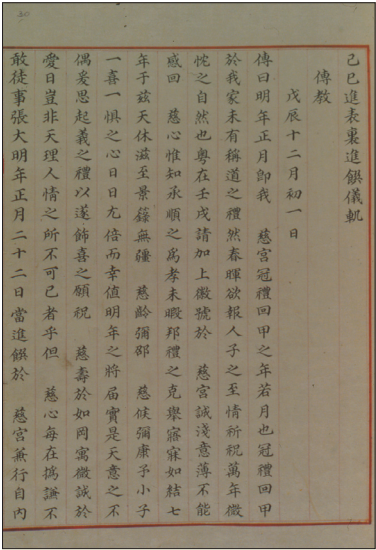 己巳進表裏進饌儀軌
傳教
戊辰十二月初一日
傳曰明年正月卽我 慈宮冠禮回甲之年若月也冠禮回甲
於我家未有稱道之禮然春暉欲報人子之至情祈祝萬年微
忱之自然也粤在壬戌請加上徽號於 慈宮誠淺意薄不能
感回 慈心惟知承順之爲孝未暇邦禮之克擧寤寐如結七
年于玆天休滋至景籙無疆 慈齡彌邵 慈候彌康予小子
一喜一惧之心日日尤倍而幸値明年之將届實是天意之不
偶爰思起義之禮以遂飾喜之願祝 慈壽於如岡寓微誠於
愛日豈非天理人情之所不可已者乎但 慈心每在撝謙不
敢徒事張大明年正月二十二日當進饌於 慈宮無行自內